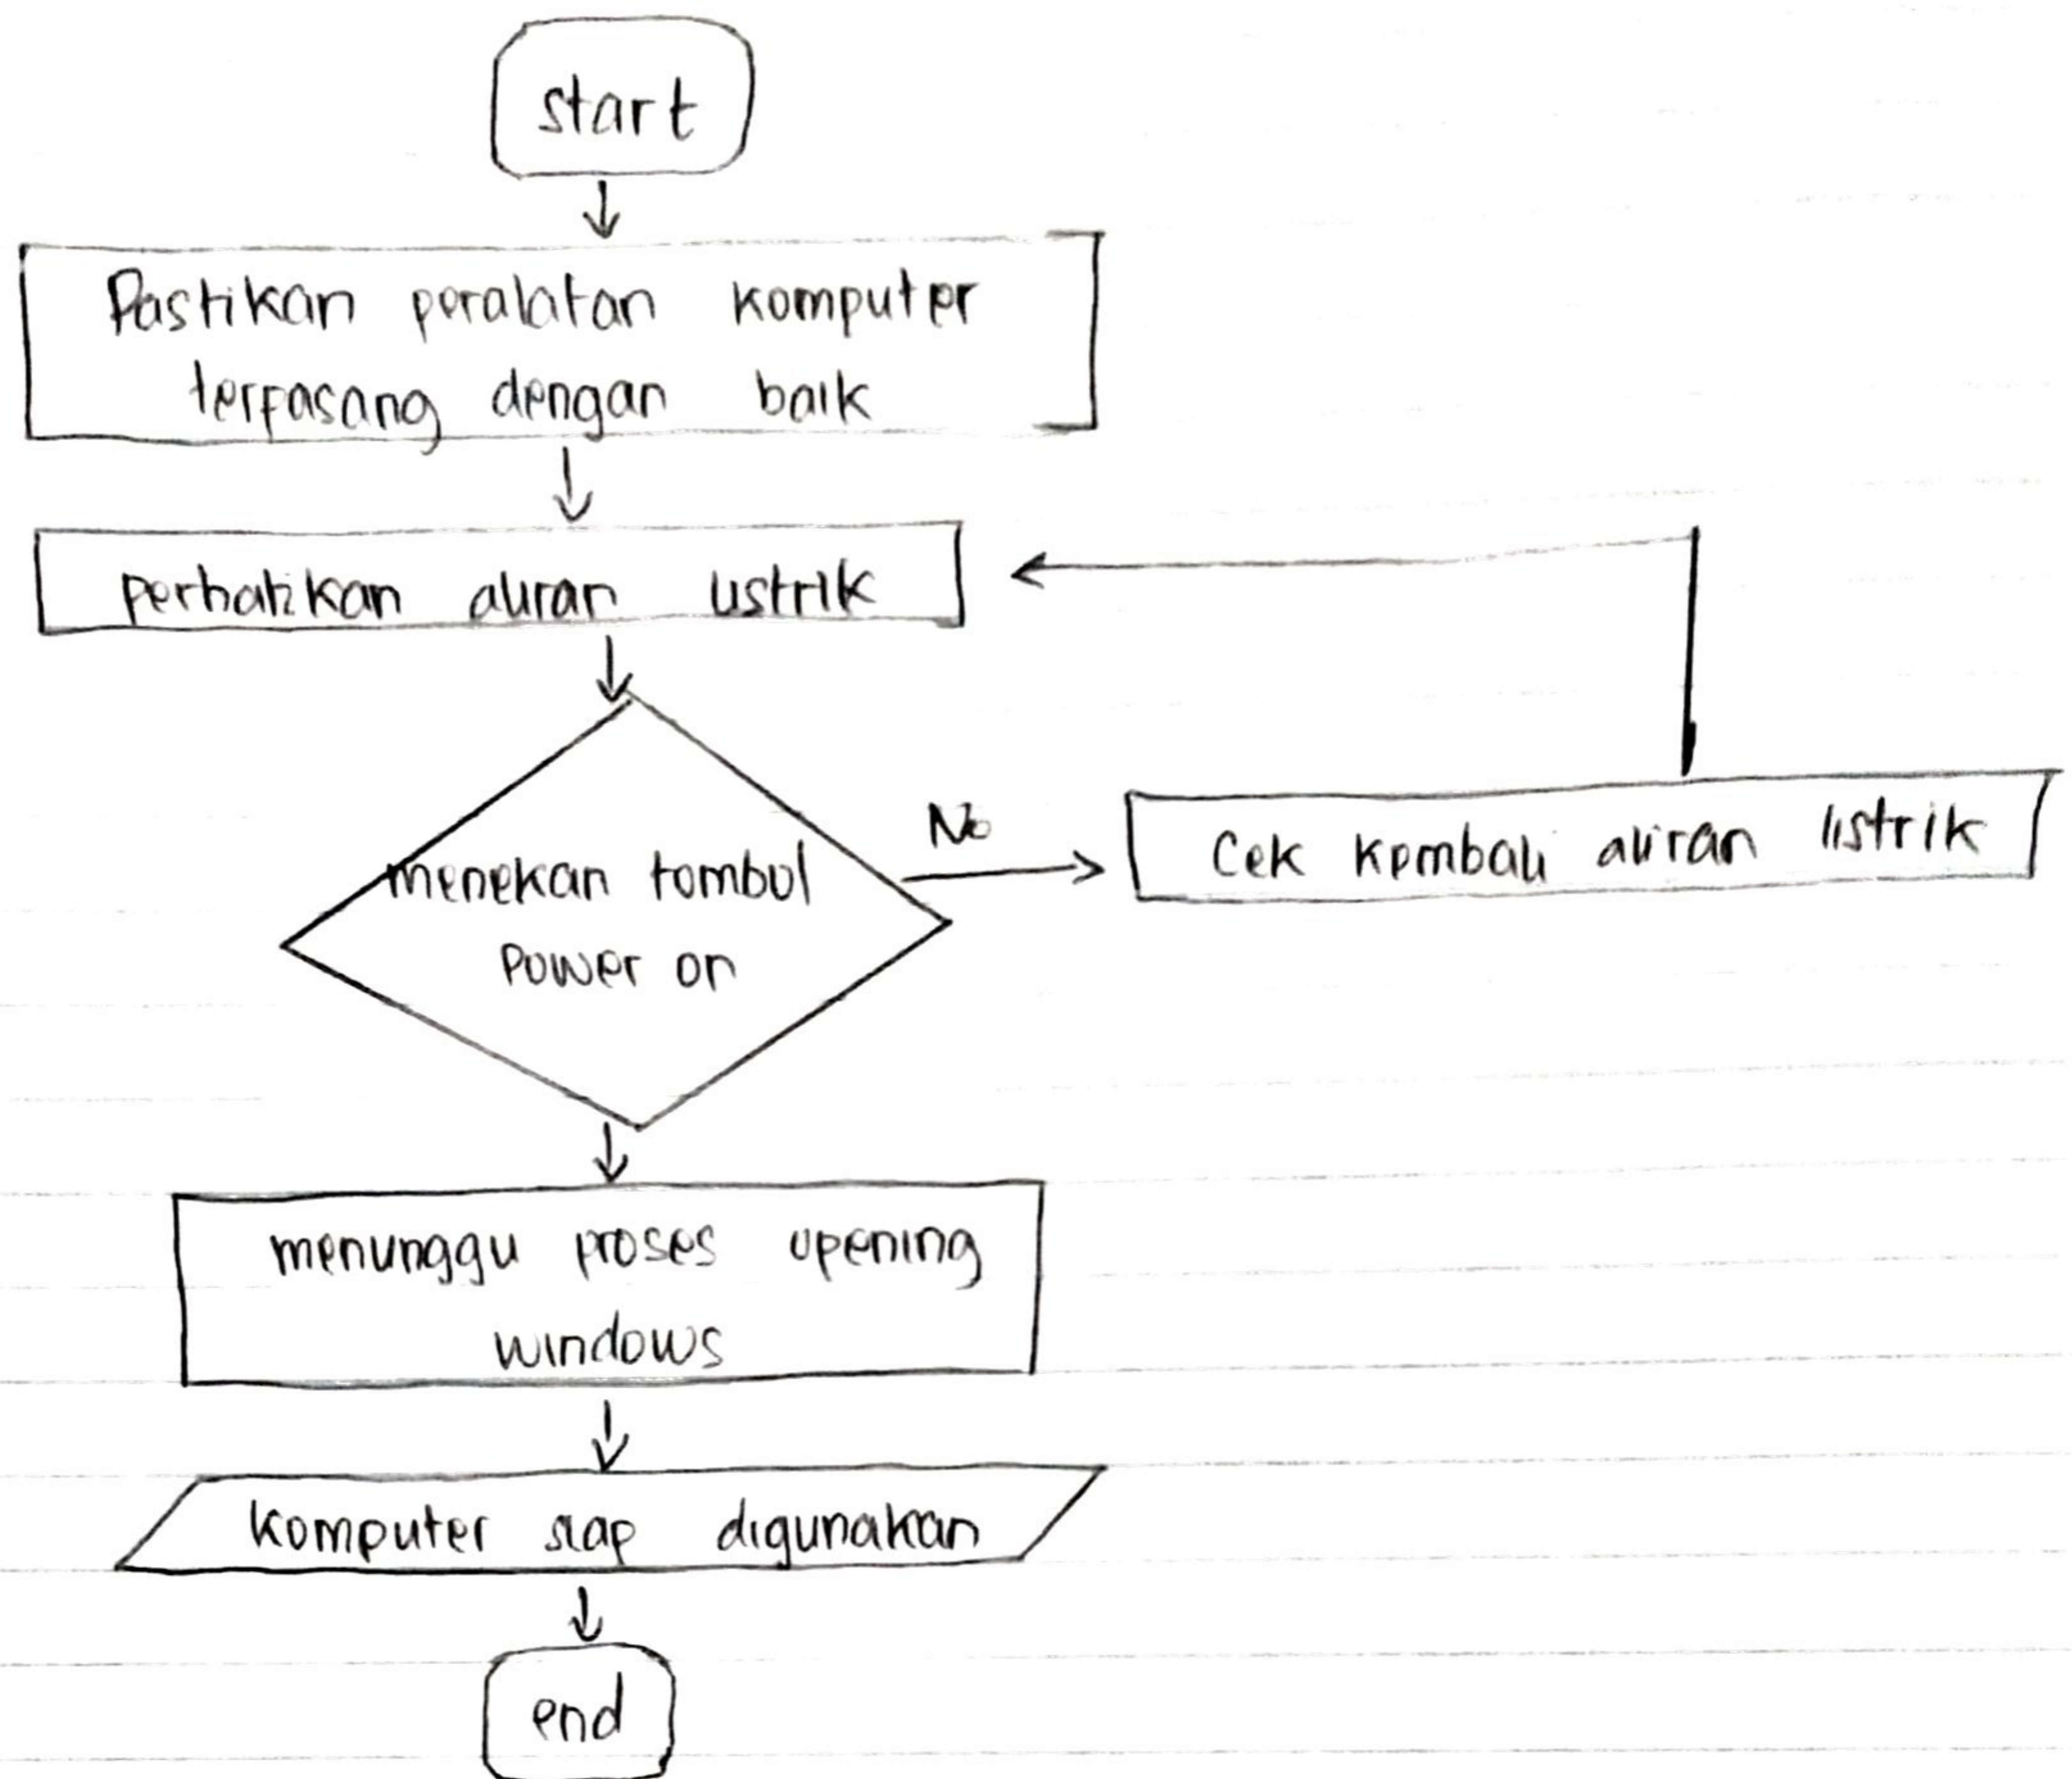 start
Pastikan peralatan komputer
terpasang dengan baik
perhatikan aliran listrik
menekan tombol
Power on
No
Cek kembali aliran listrik
menunggu proses opening
windows
komputer siap digunakan
end